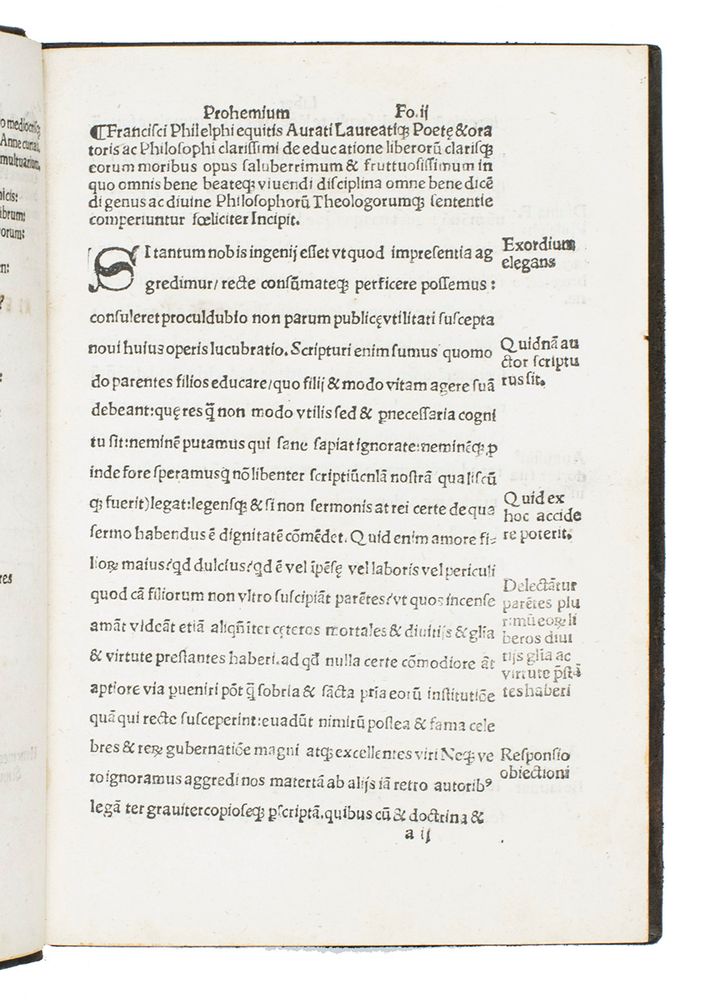 o mediocriq;
Anne cumal
multuarium.
nicis:
ibrum:
orum:
Prohemium Fo.ij
¶Francisci Philelphi equitis Aurati Laureatiq; Poetę & ora
toris ac Philosophi clarissimi de educatione liberorū clarisq;
eorum moribus opus saluberrimum & fruttuosissimum in
quo omnis bene beateq; viuendi disciplina omne bene dicē
di genus ac diuine Philosophorū Theologorumq; sententie
comperiuntur fœliciter Incipit.
SI tantum nobis ingenij esset vt quod impresentia ag
gredimur/ recte consūmateq; perficere possemus:
consuleret proculdubio non parum publicę vtilitati suscepta
noui huius operis lucubratio. Scripturi enim sumus quomo
do parentes filios educare/quo filij & modo vitam agere suā
debeant:quę res q̄ non modo vtilis sed & ꝑnecessaria cogni
tu sit:neminē putamus qui sane sapiat ignorate:neminēq; ꝓ
inde fore speramus q̄ nō libenter scriptiūcnlā nostrā qualiscū
q; fuerit)legat:legensq; & si non sermonis at rei certe de qua
sermo habendus ē dignitatē cōmēdet. Quid enim amore fi-
lioꝝ maius?qd dulcius?qd ē vel īpēsę vel laboris vel periculi
quod cā filiorum non vltro suscipiāt parētes?vt quos incense
amāt videāt etiā aliqñ īter cęteros mortales & diuitijs & glia
& virtute prestantes haberi. ad qđ nulla certe cōmodiore āt
aptiore via pueniri pōt q̄ sobria & sācta pria eorū institutiōe
quā qui recte susceperint:euadūt nimirū postea & fama cele
bres & reꝝ gubernatiōe magni atq; excellentes viri Neq; ve
ro ignoramus aggredi nos matertā ab alijs iā retro autoribꝰ
legā ter grauiter copioseq; ꝑscriptā. quibus cū & doctrina &
a ij
Exordium
elegans
Quidnā au
ctor scriptu
rus sit.
Quid ex
hoc accide
re poterit.
Delectātur
parētes plu
rimū eoꝝ li
beros diui
tijs glia ac
virtute p̄stā
tes haberi
Responsio
obiectioni